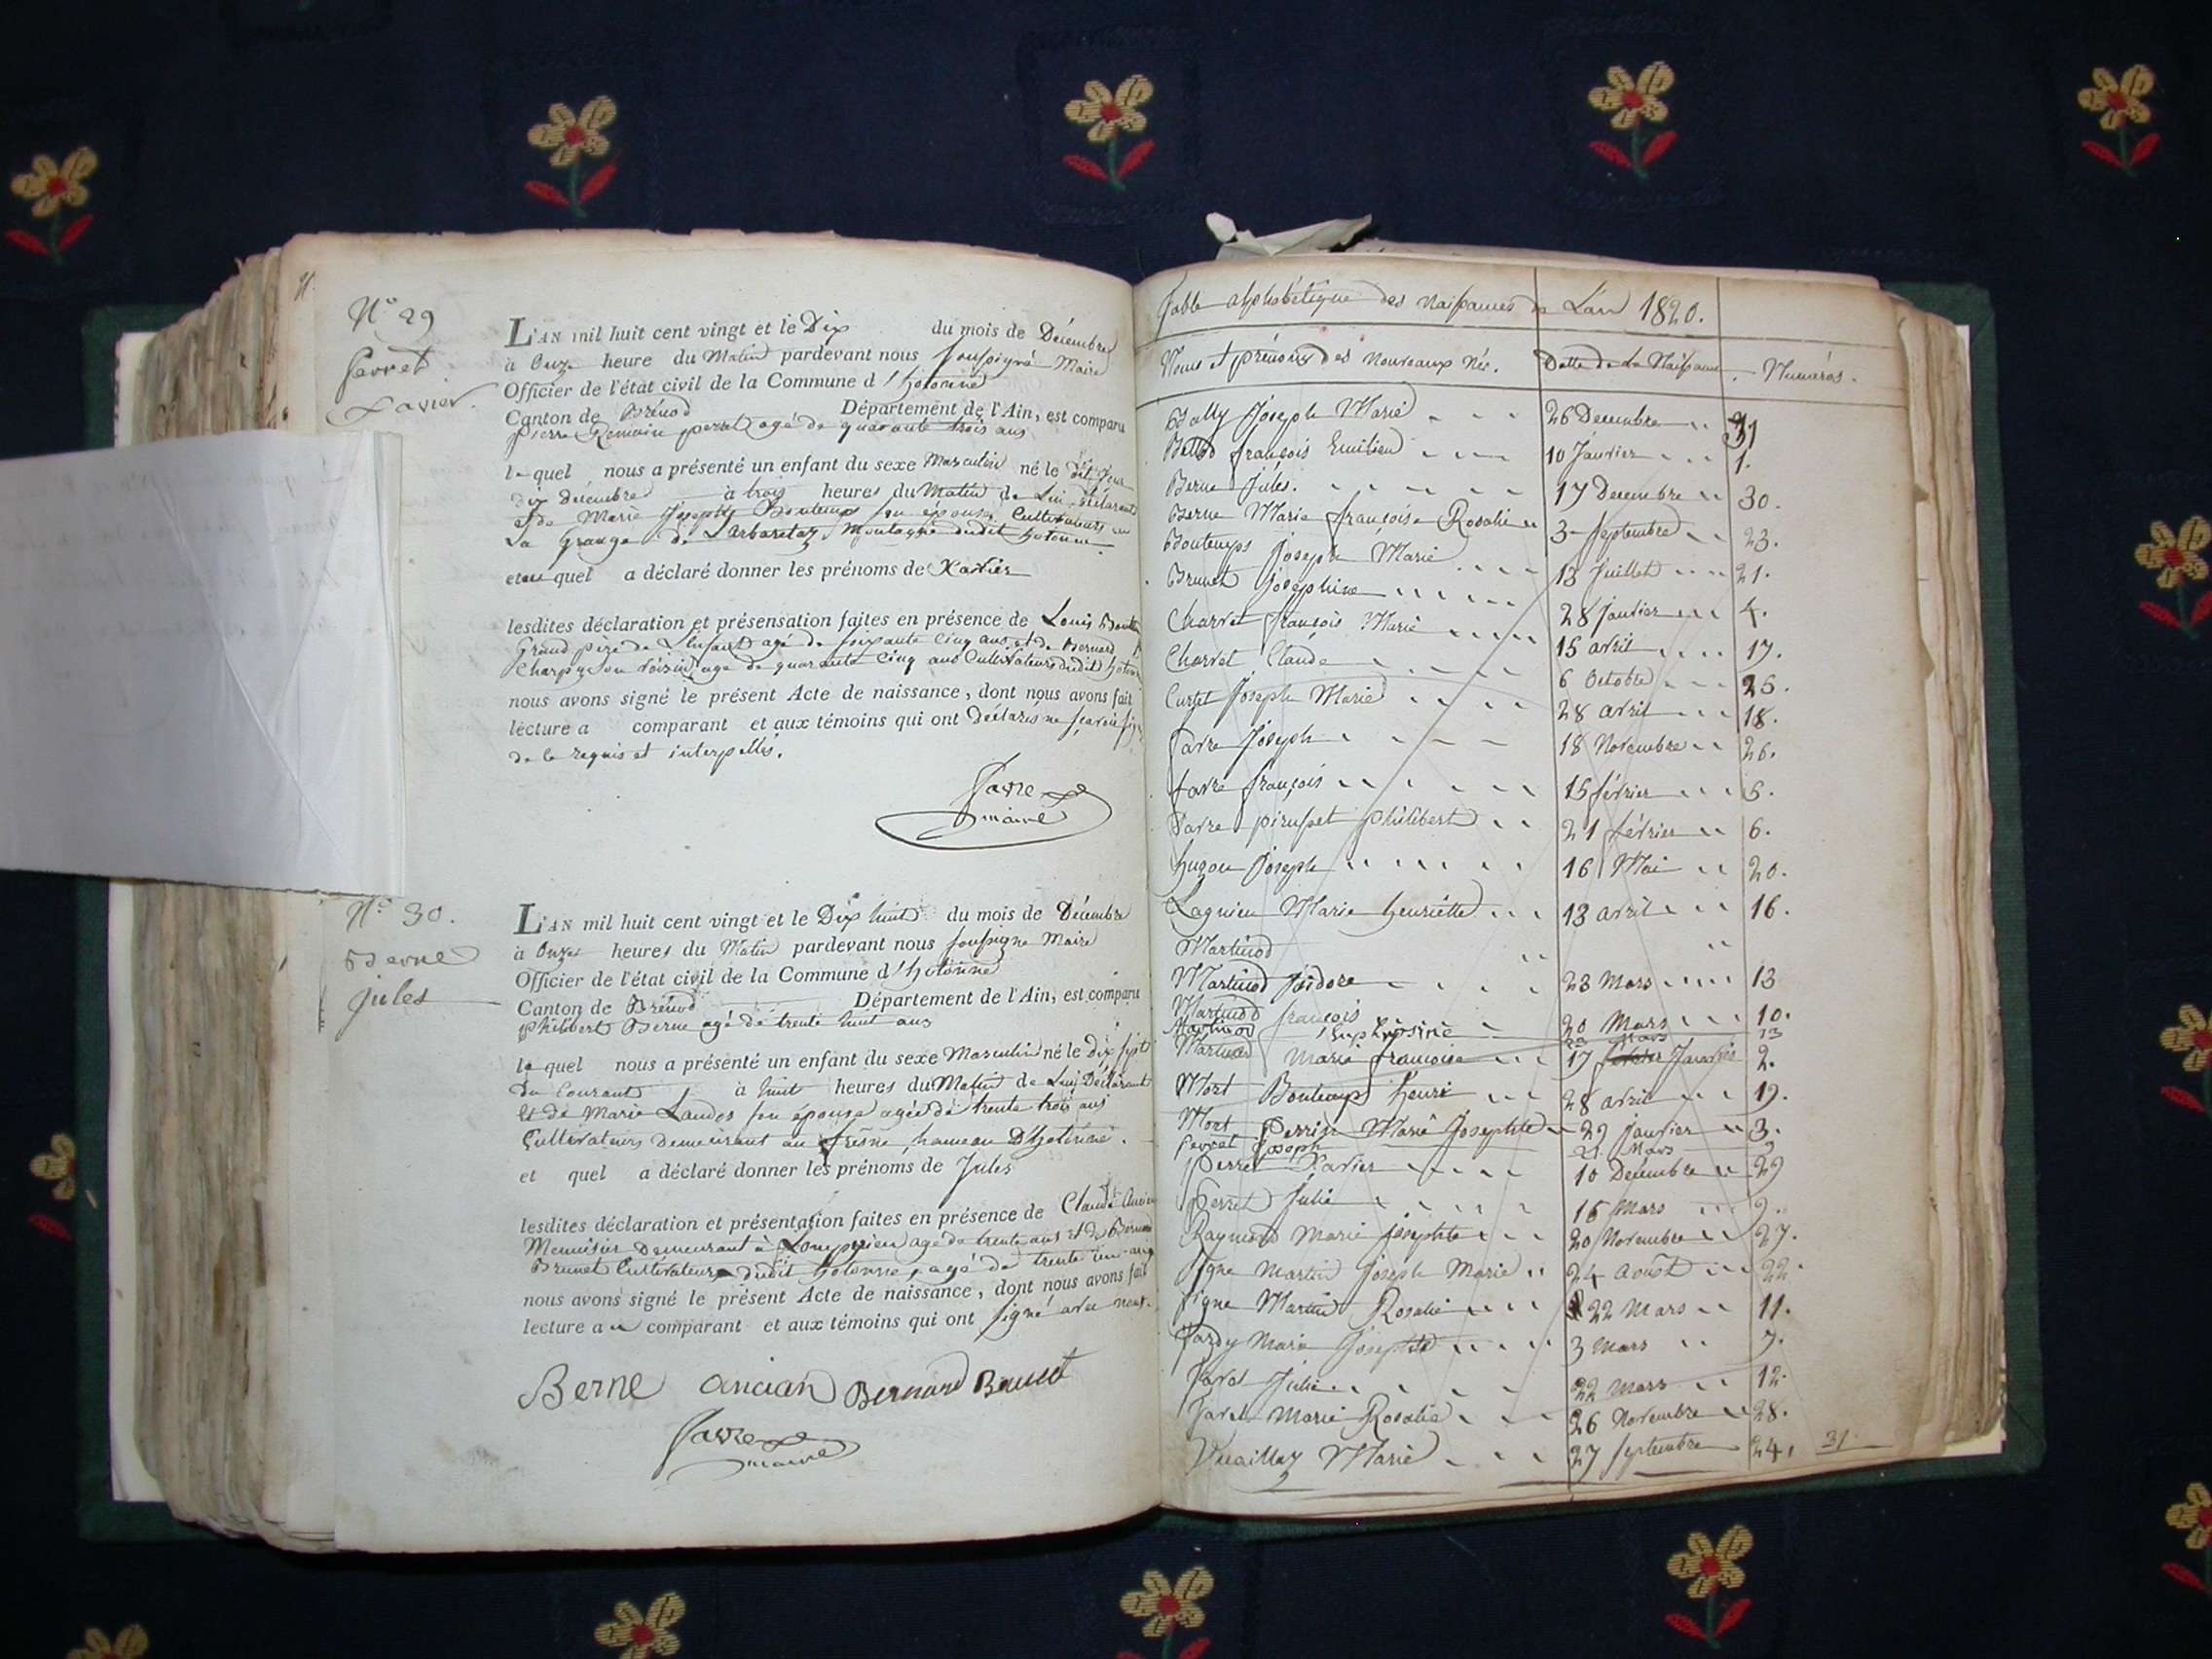 N° 29
Perret
Xavier.
L'AN mil huit cent vingt et le Dix du mois de Décembre
à Onze heure du Matin pardevant nous soussigné Maire
Officier de l'état civil de la Commune d'hotonne
Canton de Brénod Département de l'Ain, est comparu
pierre Romain perret agé de quarante trois ans
lequel nous a présenté un enfant du sexe Masculin né le dit jour
dix décembre à trois heures du Matin de Lui déclarant
et de Marie Joseph Bontemps son épouse Cultivateurs
La grange de L'arbaretaz Montagne dudit hotonne
et au quel a déclaré donner les prénoms de Xavier
lesdites déclaration et présensation faites en présence de Louis
Grand père de L'enfant agé de soixante Cinq ans et de Bernard
Charpy son voisin agé de quarante Cinq ans Cultivateurs dudit
nous avons signé le présent Acte de naissance, dont nous avons fait
lecture a comparant et aux témoins qui ont Déclarés ne savoir
de le requis et interpellés.
Favre
maire
N° 30.
Berne
jules
L'AN mil huit cent vingt et le Dix huit du mois de Décembre
à Onze heures du Matin pardevant nous soussigné Maire
Officier de l'état civil de la Commune d'hotonne
Canton de Brénod Département de l'Ain, est comparu
philibert Berne agé de trente huit ans
lequel nous a présenté un enfant du sexe Masculin né le dix sept
du Courant à huit heures du Matin de Lui Déclarant
et de Marie Landos son épouse agée de trente trois ans
Cultivateurs demeurant au fresne, hameau D'hotonne.
et quel a déclaré donner les prénoms de Jules
lesdites déclaration et présentation faites en présence de Claude Ancian
Menuisier Demeurant à agé de trente ans et de Bernard
Brunet Cultivateur dudit hotonne, agé de trente
nous avons signé le présent Acte de naissance, dont nous avons fait
lecture a comparant et aux témoins qui ont signé avec nous.
Berne ancian Bernard Brunet
Favre
maire
Table alphabétique des Naissances de L'an 1820.
Noms et prénoms des nouveaux Nés. Datte de La Naissance. Numéros.
Bally Joseph Marie 26 Décembre 31
françois Emilien 10 Janvier 1.
Berne Jules. 17 Décembre 30.
Berne Marie françoise Rosalie 3 Septembre 23.
Bontemps Joseph Marie 13 Juillet 21.
Brunet Joséphine 28 Janvier 4.
Charvet françois Marie 15 avril 17.
Charvet Claude 6 Octobre 25.
Curtet Joseph Marie 28 avril 18.
favre Joseph 18 Novembre 26.
favre françois 15 février 5.
favre pirusset philibert 21 février 6.
hugon Joseph 16 Mai 20.
Lagnieu Marie henriette 13 avril 16.
Martinod
Martinod Isidore 23 Mars 13
Martinod françois 20 Mars 10.
Martinod Euphrosine Mars 13
Martinod Marie françoise 17 Janvier 2.
Mort Bontemps henri 28 avril 19.
Mort Perrin Marie Josephte 29 janvier 3.
Perret Joseph 21 Mars
Perret Xavier 10 Décembre 29
Perret Julie 16 Mars 9.
Raymond Marie josephte 20 Novembre 27.
Signe Martin Joseph Marie 24 août 22.
Signe Martin Rosalie 22 Mars 11.
Tardy Marie Josephte 3 Mars 7.
Julie 22 Mars 12.
Marie Rosalie 26 Novembre 28.
Vuaillaz Marie 27 Septembre 24. 31